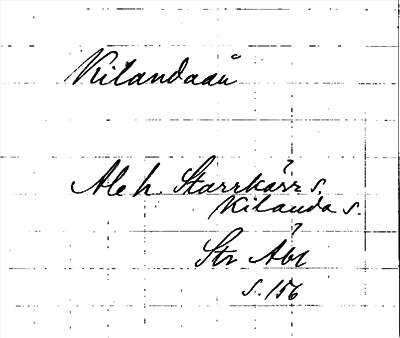 Kilandaån
Ale h. Starrkärr s.
Kilanda s.
Str Åbl
s. 156